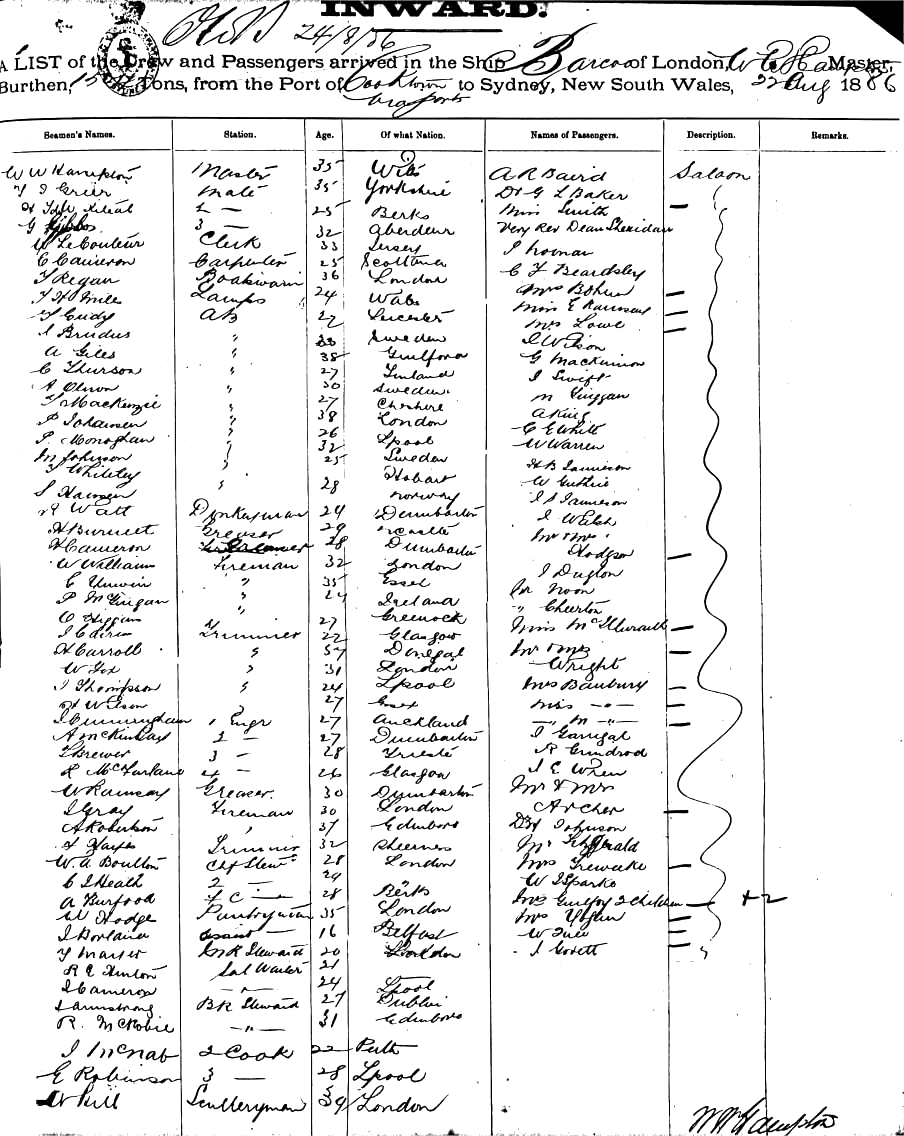 INWARD.
24/8/86
A LIST of the Crew and Passengers arrived in the Ship Barcoo of London, W Master,
Burthen, Tons, from the Port of Cooktown to Sydney, New South Wales, 22 Aug 1886
Seamen's Names. Station. Age. Of what Nation. Names of Passengers. Description. Remarks.
W W Hampton Master 35 Wilts A R Baird Saloon
T J Grier Mate 35 Yorkshire Dr G L Baker
2 — 25 Berks Miss Smith —
G Gibbs 3 — 32 Aberdeen Very Rev Dean Sheridan
W Le Couteur Clerk 33 Jersey J Noonan
C Cameron Carpenter 25 Scotland C F Beardsley
T Regan Boatswain 36 London Mrs Bohun —
Lamps 24 Wales Miss E Ramsay —
T Cudy AB 22 Leicester Mrs Lowe —
J Brudus " 33 Sweden J Wilson
A Giles " 38 Guilford G MacKinnon
C Thurson " 27 Finland J Swift
A Olsson " 30 Sweden M Finggan
T MacKenzie " 27 Cheshire A King
P Johansen " 38 London C E White
P. Monoghan " 26 Lpool W Warren
M Johnson " 32 Sweden H B Jamieson
T Whiteley " 25 Hobart W Guthrie
J Hansen " 28 Norway J S Jamieson
R Watt Donkeyman 24 Dumbarton J Welsh
H Burnett Greaser 29 Mr & Mrs
H Cameron 28 Dumbarton Hodgson —
W Williams Fireman 32 London J Duglon
C Unwin " 35 Essex Mr Noon
P McGuigan " 24 Ireland " Cheerton
O Higgins 27 Greenock Miss McIllwraith —
J Cairns Trimmer 22 Glasgow Mr & Mrs —
H Carroll " 57 Donegal Wright
W Fox " 31 London Mrs Banbury —
J Thompson " 24 Lpool Miss —"— —
H Wilson " 27 Essex —"— M —"— —
J Cunningham 1 Engr 27 Auckland J Garrigal
A McKinlay 2 — 27 Dumbarton R Grindrod
T Brewer 3 — 28 Trieste J E Wren
R McFarlane 4 — 26 Glasgow Mr & Mrs
W Ramsay Greaser 30 Dumbarton Archer —
J Gray Fireman 30 London Johnson
A Robertson " 37 Edinboro Mr Fitzgerald
Hayes Trimmer 32 Sheerness Mrs Trewecke —
W. A. Boulton Chf Stewd 28 London W J Sparks
C J Heath 2 — 29 Mrs Guilfoy 2 Children — +2
A Burfood F C — 28 Berks Mrs —
W Hodge Pantryman 35 London W —
J Borland assist — 16 Belfast J Govett
T SR Steward 20 London
R E Hinton Sal Waiter 21
J Cameron —"— 24 Lpool
J Armstrong BR Steward 27 Dublin
R. McRobie —"— 31 Edinboro
J McNab 2 Cook 22 Perth
E Robinson 3 — 28 Lpool
W Hill Scullery man 39 London
W W Hampton